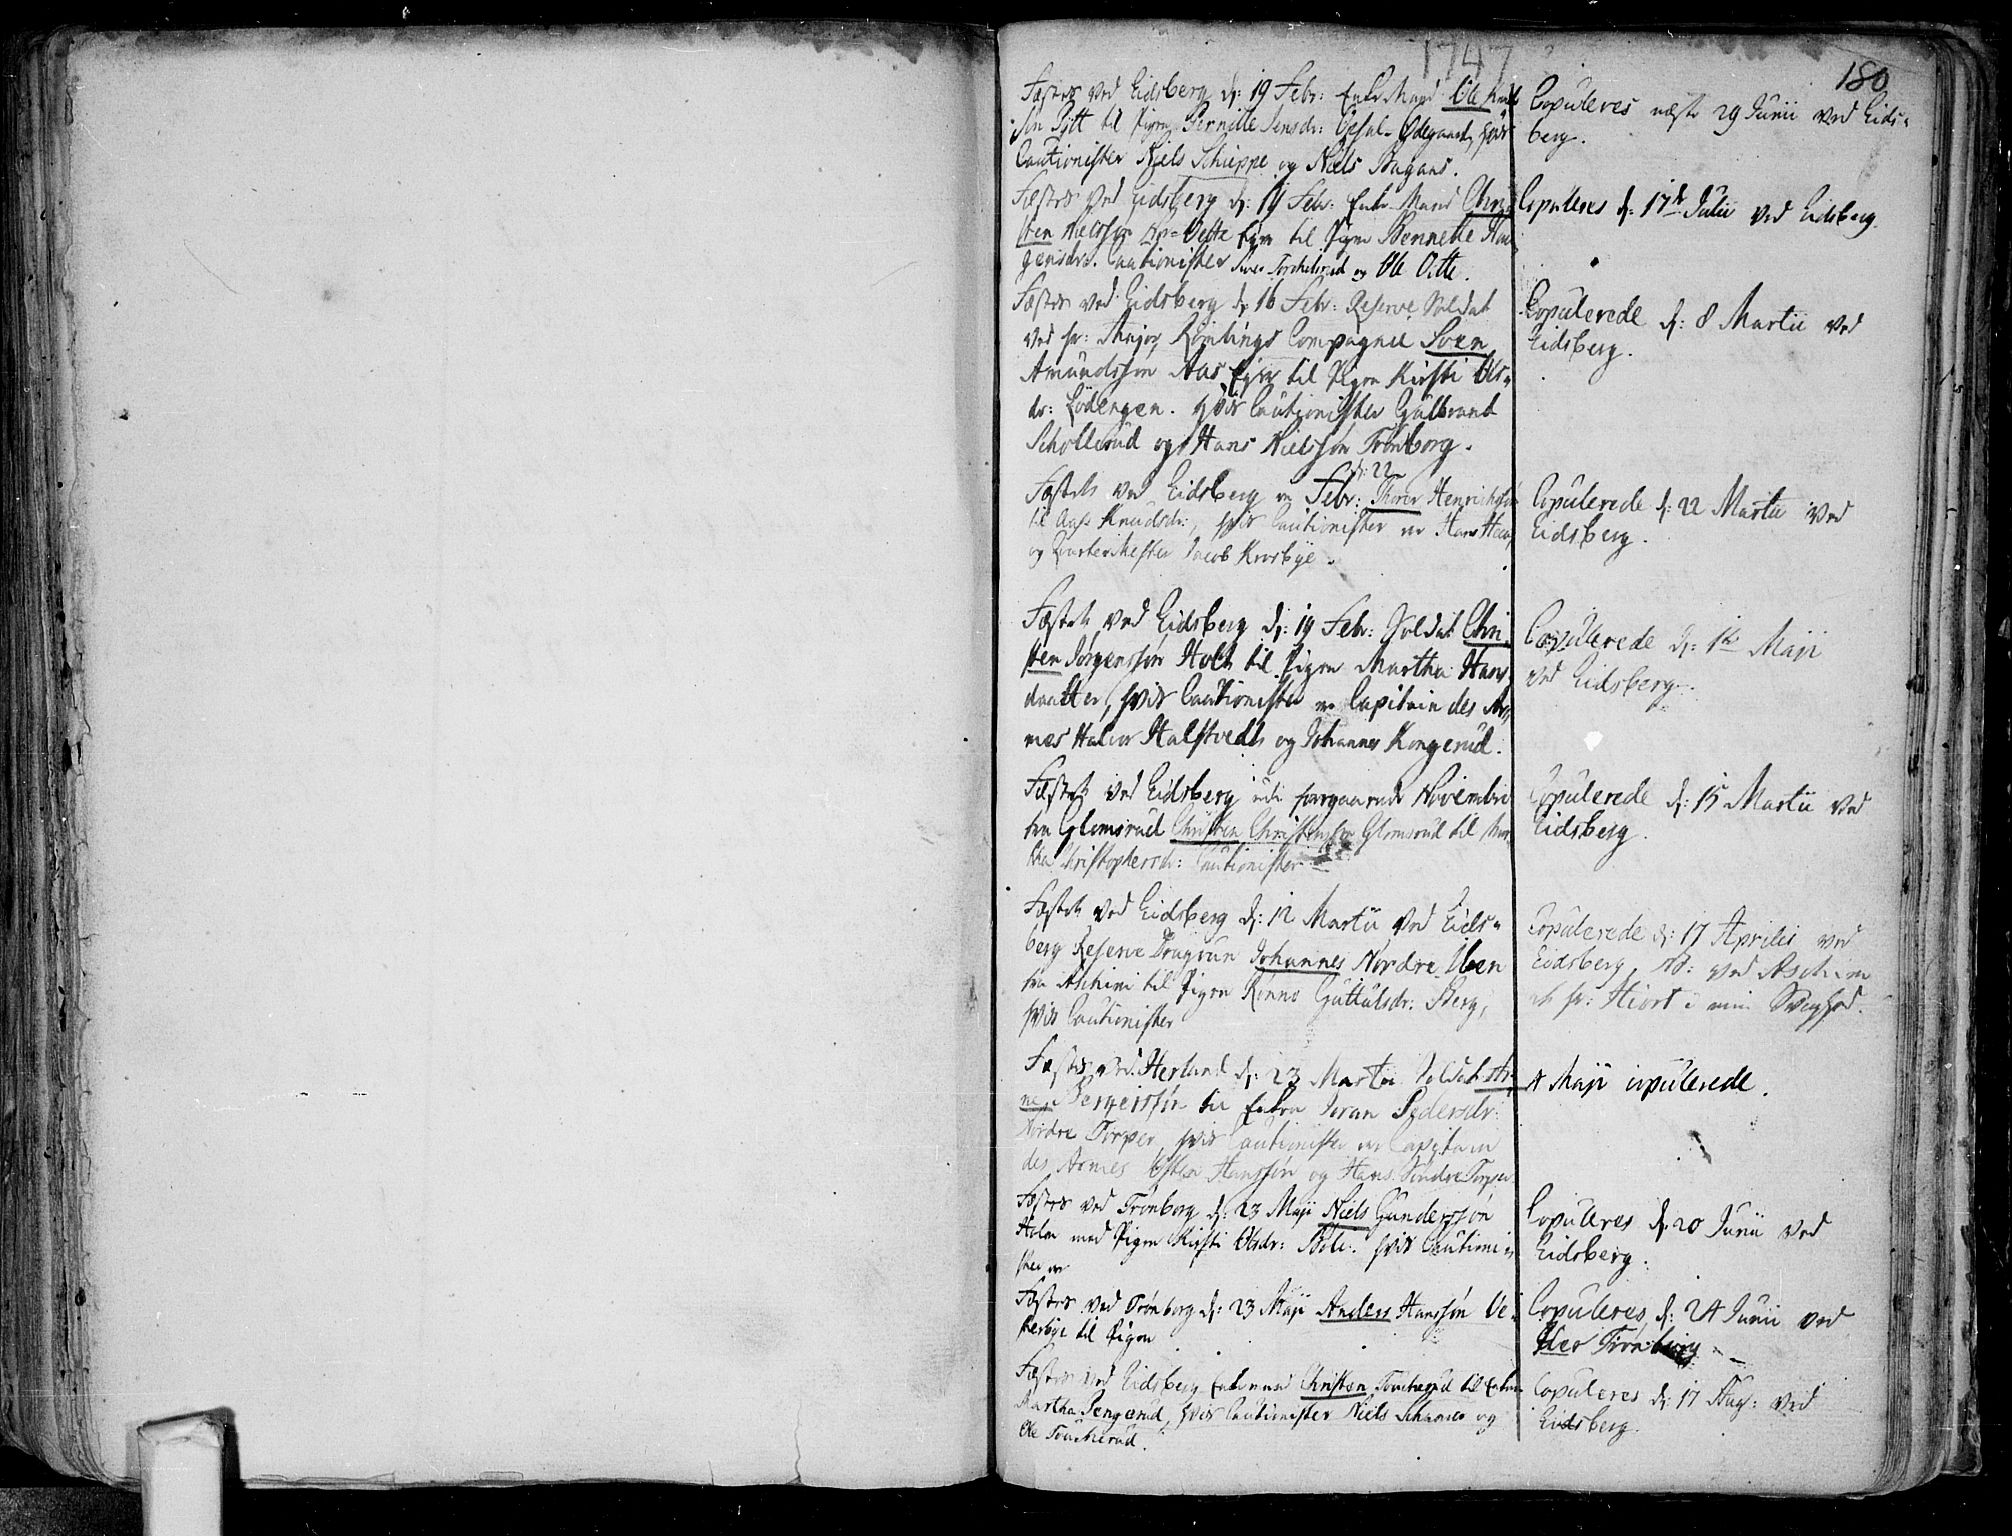 1747
180
Fæstes ved Eidsberg d: 19 Febr: Enke Mand Ole
til Pigen Pernille Jensdr: Opsal Ødegaard, hvis
Cautionister Niels Schieppe og Niels Hagaas.
Copuleres næste 29 Junii ved Eids-
berg.
Fæstes ved Eidsberg d: 19 Febr: Enke Mand Chri-
sten Nielssøn til Pigen Bennette Haa-
gensdr. Cautionister Torchelsrud og Ole Vitte.
Copuleres d: 17de Julii ved Eidsberg.
Fæstes ved Eidsberg d: 16 Febr: Reserve Soldat
ved hr: Major Rømlings Compagnie Svend
Amundssøn Aas Eger til Pigen Kirsti Ols-
dr: Lødengen. hvis Cautionister Gulbrand
Schollerud og Hans Nielssøn Trønborg.
Copulerede d: 8 Martii ved
Eidsberg.
d: 22
Fæstede ved Eidsberg Febr: Thorer Henrichssøn
til Aase Knudsdr:, hvis Cautionister er Hans
og Qvarteermester Jacob Krosbye.
Copulerede d: 22 Martii ved
Eidsberg.
Fæstede ved Eidsberg d: 19 Febr: Soldat Chri-
sten Jørgenssøn Holt til Pigen Martha Hans-
daatter, hvis Cautionister er Capitain des Ar-
mes Halvor Halstvedt og Johannes Kongerud.
Copulerede d: 1te Maji
ved Eidsberg.
Fæstede ved Eidsberg udi forgaaende Novembri
fra Glomsrud Christen Christenssøn Glomsrud til Mar-
tha Christophersdr: Cautionister
Copulerede d: 15 Martii ved
Eidsberg.
Fæstede ved Eidsberg d: 12 Martii ved Eids-
berg Reserve Dragoun Johannes Nordre Uben
fra Aschim til Pigen Rønno Guttulsdr: Berg,
hvis Cautionister
Copulerede d: 17 Aprilis ved
Eidsberg, NB: ved Aschim
hr: Hiort i min Svaghed.
Fæstes ved Herland d: 23 Martii Soldat Ar-
ne Bergerssøn til Enken Joran Pedersdr:
Nordre Torper, hvis Cautionister er Capitain
des Armes Østen Hanssøn og Hans Søndre Torper
4 Maji copulerede.
Fæstes ved Trønborg d: 23 Maji Niels Gunderssøn
Holm med Pigen Kirsti Olsdr: hvis Cautioni-
ster er
Copuleres d: 20 Junii ved
Eidsberg.
Fæstes ved Trønborg d: 23 Maji Anders Hanssøn Ve-
sterbye til Pigen
Copuleres d: 24 Junii ved
Trønborg
Fæstes ved Eidsberg Enkemand Christen Toucherud til Enken
Martha Pengerud, hvis Cautionister Niels Schaaner og
Ole Toucherud.
Copuleres d: 17 Aug: ved
Eidsberg.